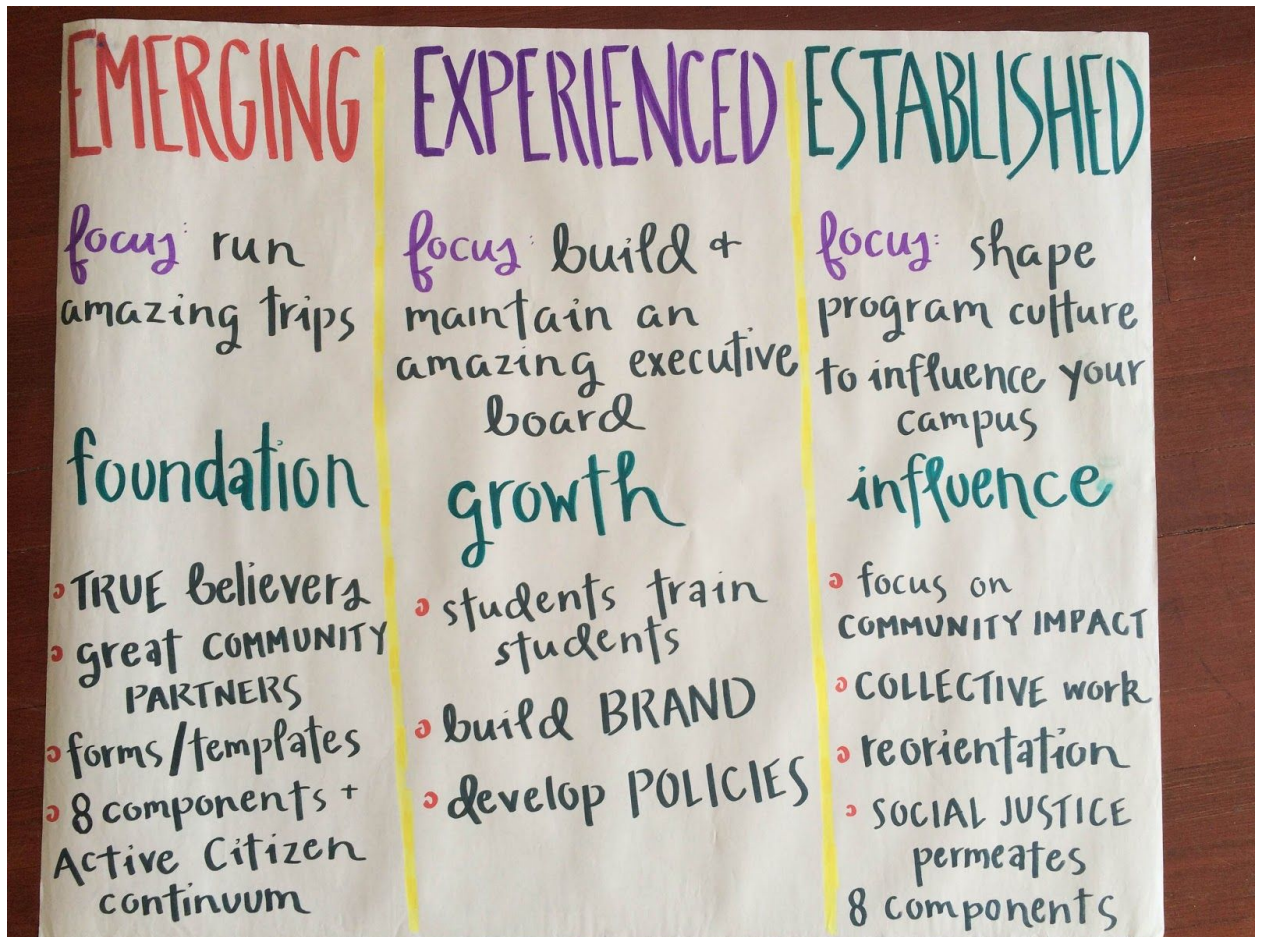 EMERGING
focus: run
amazing trips
foundation
TRUE believers
great COMMUNITY
PARTNERS
forms/templates
8 components +
Active Citizen
continuum
EXPERIENCED
focus: build +
maintain an
amazing executive
board
growth
students train
students
build BRAND
develop POLICIES
ESTABLISHED
focus: shape
program culture
to influence your
campus
influence
focus on
COMMUNITY IMPACT
COLLECTIVE work
reorientation
SOCIAL JUSTICE
permeates
8 components